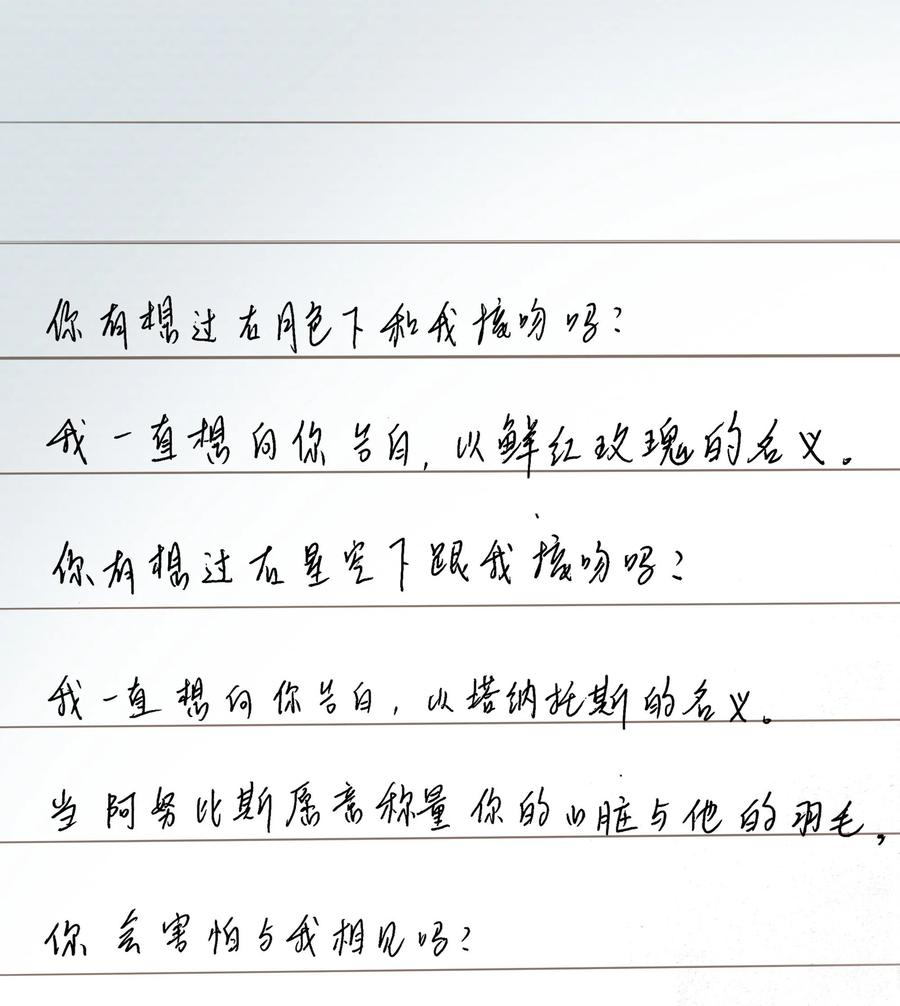 你有想过在月色下和我接吻吗?
我一直想向你告白,以鲜红玫瑰的名义。
你有想过在星空下跟我接吻吗?
我一直想向你告白,以塔纳托斯的名义。
当阿努比斯愿意称量你的心脏与他的羽毛,
你会害怕与我相见吗?